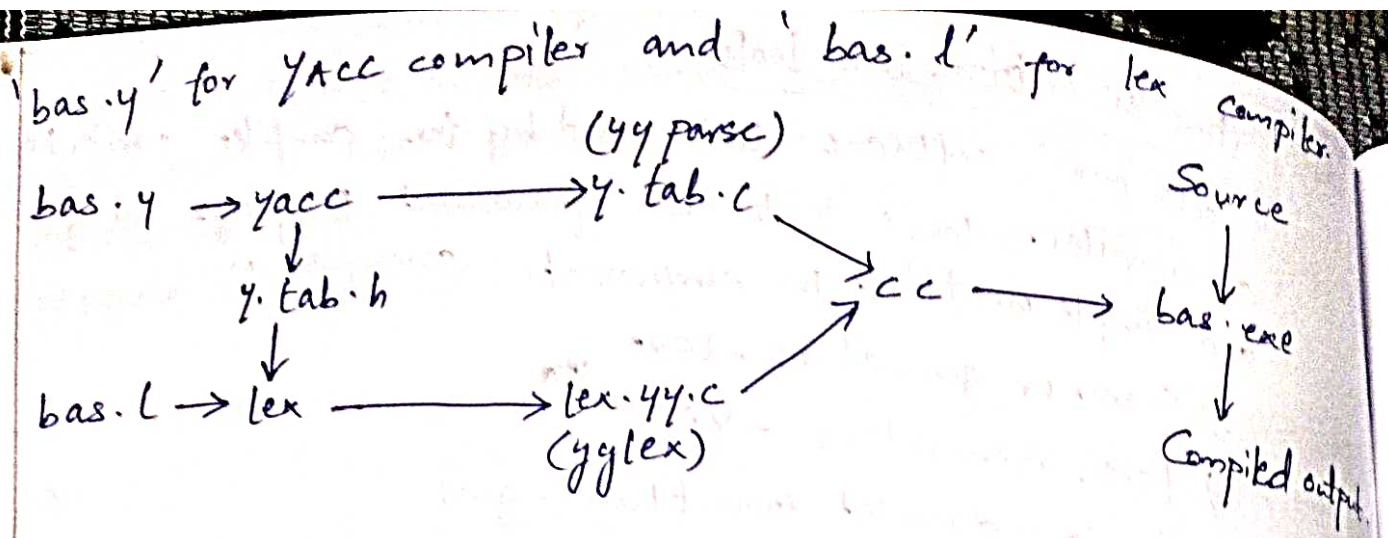 'bas.y' for YACC compiler and 'bas.l' for lex compiler.
(yy parse)
bas.y → yacc → y.tab.c
Source
y.tab.h
cc → bas.exe
bas.l → lex → lex.yy.c
(yylex)
Compiled output.